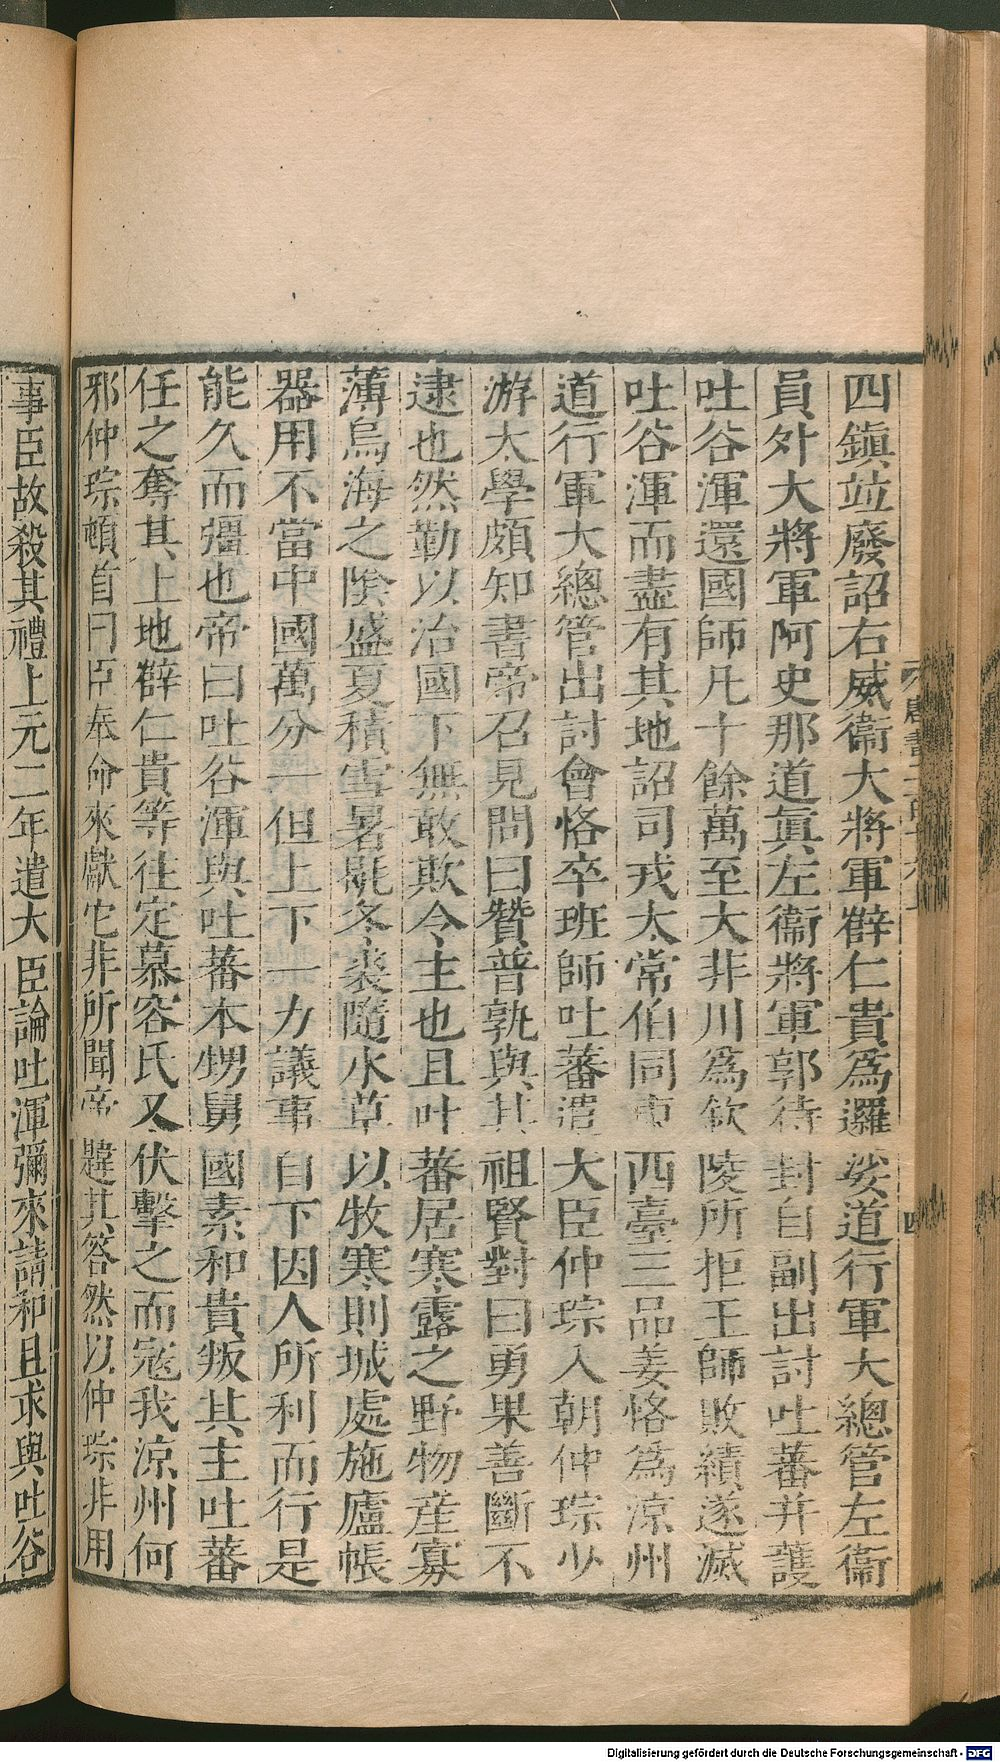 四鎮竝廢詔右威衞大將軍薛仁貴爲邏娑道行軍大總管左衞
員外大將軍阿史那道眞左衞將軍郭待封自副出討吐蕃并護
吐谷渾還國師凡十餘萬至大非川爲欽陵所拒王師敗績遂滅
吐谷渾而盡有其地詔司戎太常伯同東西臺三品姜恪爲涼州
道行軍大總管出討會恪卒班師吐蕃遣大臣仲琮入朝仲琮少
游太學頗知書帝召見問曰贊普孰與其祖賢對曰勇果善斷不
逮也然勤以治國下無敢欺令主也且吐蕃居寒露之野物產寡
薄烏海之陰盛夏積雪暑毼冬裘隨水草以牧寒則城處施廬帳
器用不當中國萬分一但上下一力議事自下因人所利而行是
能久而彊也帝曰吐谷渾與吐蕃本甥舅國素和貴叛其主吐蕃
任之奪其土地薛仁貴等往定慕容氏又伏擊之而寇我涼州何
邪仲琮頓首曰臣奉命來獻它非所聞帝韙其答然以仲琮非用
事臣故殺其禮上元二年遣大臣論吐渾彌來請和且求與吐谷
唐書二百十六上
四
Digitalisierung gefördert durch die Deutsche Forschungsgemeinschaft - DFG